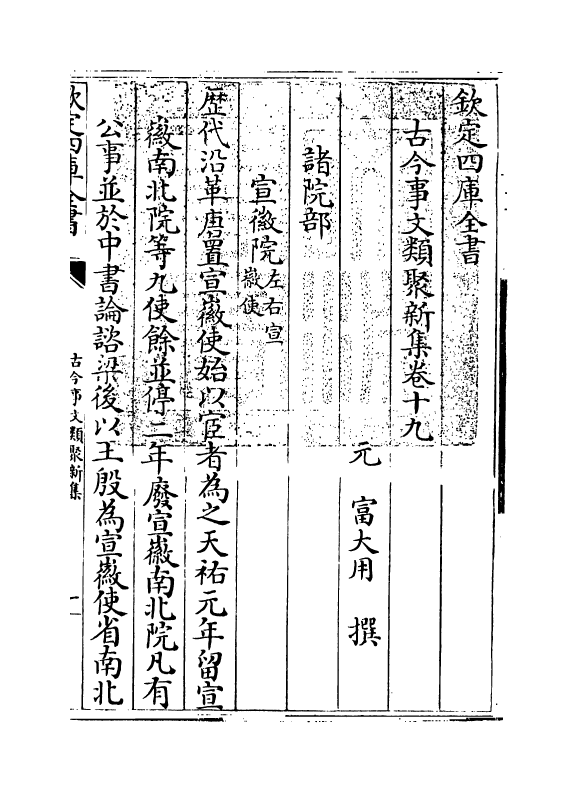 欽定四庫全書
古今事文類聚新集卷十九
元 富大用 撰
諸院部
宣徽院左右宣徽使
歴代沿革唐置宣徽使始以宦者為之天祐元年留宣
徽南北院等九使餘並停二年廢宣徽南北院凡有
公事並於中書論諮梁後以王殷為宣徽使省南北
欽定四庫全書
古今事文類聚新集
一